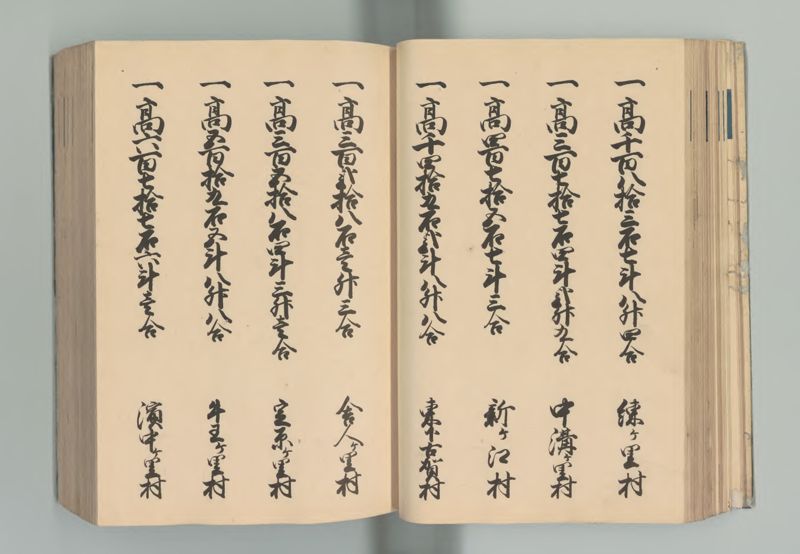 一高千百八拾三石七斗八升四合 練ヶ里村
一高三百七拾七石四斗弐升九合 中溝ヶ里村
一高四百七拾五石七斗三合 新ヶ江村
一高千四拾五石弐斗八升八合 東古賀村
一高三百弐拾八石壱升三合 舎人ヶ里村
一高三百五拾八石四斗三升壱合 定原ヶ里村
一高五百拾九石五斗八升八合 牛王ヶ里村
一高六百七拾七石六斗壱合 濱中ヶ里村